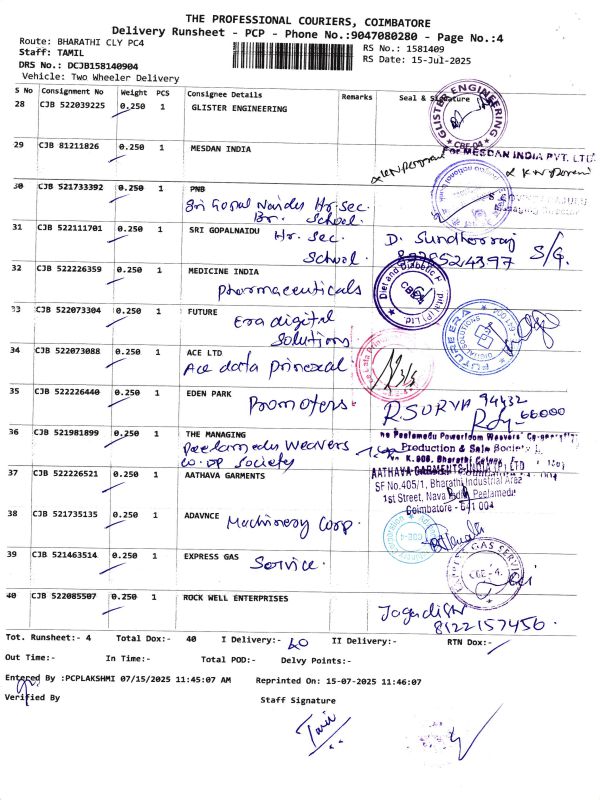 THE PROFESSIONAL COURIERS, COIMBATORE
Delivery Runsheet - PCP - Phone No.:9047080280 - Page No.:4
Route: BHARATHI CLY PC4
RS No.: 1581409
Staff: TAMIL
RS Date: 15-Jul-2025
DRS No.: DCJB158140904
Vehicle: Two Wheeler Delivery
S No Consignment No Weight PCS Consignee Details Remarks Seal & Signature
28 CJB 522039225 0.250 1 GLISTER ENGINEERING
GLISTER ENGINEERING
CBE-04
29 CJB 81211826 0.250 1 MESDAN INDIA
For MESDAN INDIA PVT. LTD.
30 CJB 521733392 0.250 1 PNB
Sri Gopal Naidu Hr. Sec.
School.
31 CJB 522111701 0.250 1 SRI GOPALNAIDU
Hr. Sec.
School.
D. Sundharraj
S/G.
32 CJB 522226359 0.250 1 MEDICINE INDIA
Pharmaceuticals
Diet and Diabetic
33 CJB 522073304 0.250 1 FUTURE
Era digital
Solutions
FUTURE ERA
DIGITAL SOLUTIONS
34 CJB 522073088 0.250 1 ACE LTD
Ace data
35 CJB 522226440 0.250 1 EDEN PARK
Promoters
R. SURYA 94432
66000
36 CJB 521981899 0.250 1 THE MANAGING
Peelamedu Weavers
co-op Society
The Peelamedu Powerloom Weavers' Co-operative
Production & Sale Society
37 CJB 522226521 0.250 1 AATHAVA GARMENTS
AATHAVA GARMENTS INDIA (P) LTD
SF No.405/1, Bharathi Industrial Area
1st Street, Nava India, Peelamedu
Coimbatore - 641 004
38 CJB 521735135 0.250 1 ADAVNCE
Machinery Corp.
COE-4
39 CJB 521463514 0.250 1 EXPRESS GAS
Service.
EXPRESS GAS SERVICE
CBE-4.
40 CJB 522085507 0.250 1 ROCK WELL ENTERPRISES
Jagadish
8122157456.
Tot. Runsheet:- 4 Total Dox:- 40 I Delivery:- 40 II Delivery:- RTN Dox:-
Out Time:- In Time:- Total POD:- Delvy Points:-
Entered By :PCPLAKSHMI 07/15/2025 11:45:07 AM Reprinted On: 15-07-2025 11:46:07
Verified By Staff Signature